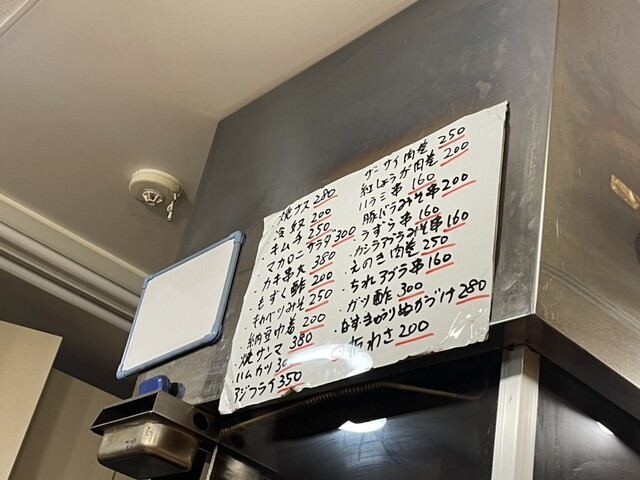 焼ナス 280
冷奴 200
キムチ 250
マカロニサラダ 300
カキ串大 380
もずく酢 200
キャベツみそ 250
納豆巾着 200
焼サンマ 380
ハムカツ 30
アジフライ 350
ザーサイ肉巻 250
紅しょうが肉巻 200
ハラミ串 160
豚バラみそ串 200
うずら串 160
カシラアブラみそ串 160
えのき肉巻 250
ちれアブラ串 160
ガツ酢 300
なすきゅうりぬかづけ 280
板わさ 200